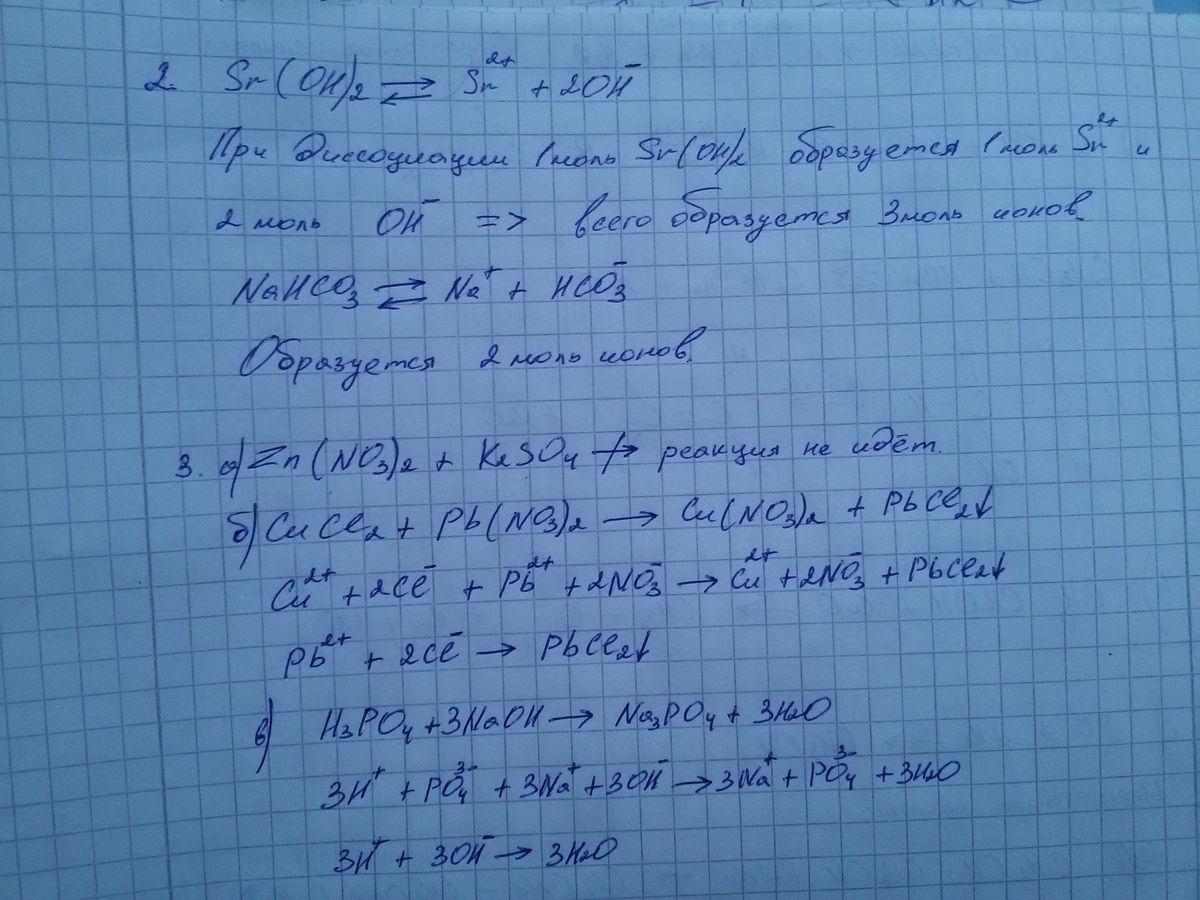 2. Sr(OH)2 ⇄ Sr²⁺ + 2OH⁻
При диссоциации 1 моль Sr(OH)2 образуется 1 моль Sr²⁺ и
2 моль OH⁻ => всего образуется 3 моль ионов.
NaHCO3 ⇄ Na⁺ + HCO3⁻
Образуется 2 моль ионов.
3. а) Zn(NO3)2 + K2SO4 ↛ реакция не идёт.
б) CuCl2 + Pb(NO3)2 → Cu(NO3)2 + PbCl2↓
Cu²⁺ + 2Cl⁻ + Pb²⁺ + 2NO3⁻ → Cu²⁺ + 2NO3⁻ + PbCl2↓
Pb²⁺ + 2Cl⁻ → PbCl2↓
в) H3PO4 + 3NaOH → Na3PO4 + 3H2O
3H⁺ + PO4³⁻ + 3Na⁺ + 3OH⁻ → 3Na⁺ + PO4³⁻ + 3H2O
3H⁺ + 3OH⁻ → 3H2O